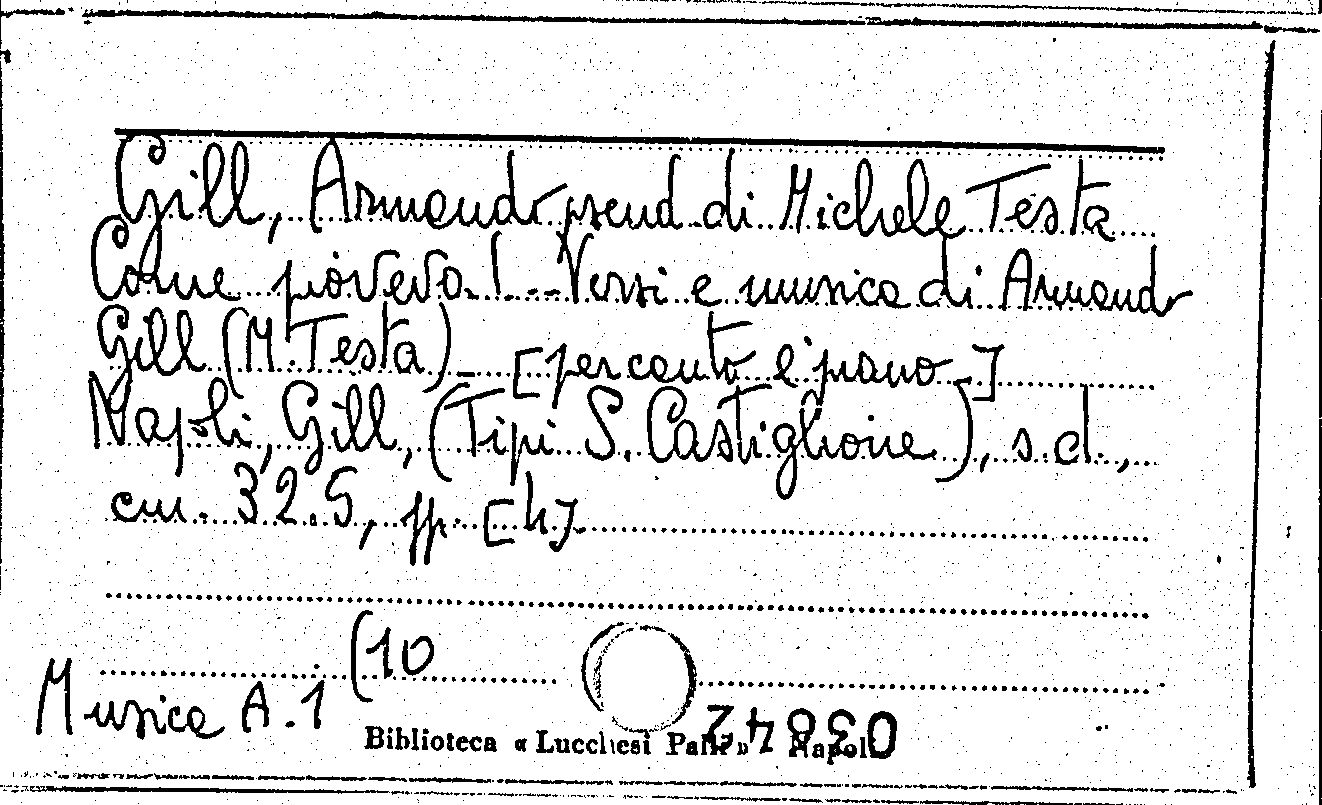 Gill, Armando pseud di Michele Testa
Come pioveva.! - Versi e musica di Armando
Gill (M. Testa) - [per canto e piano -]
Napoli, Gill, (Tipi S. Castiglione), s.d.,
cm. 32.5, pp. [4].
(10
Musica A.1
Biblioteca « Lucchesi Palli » Napoli
03842